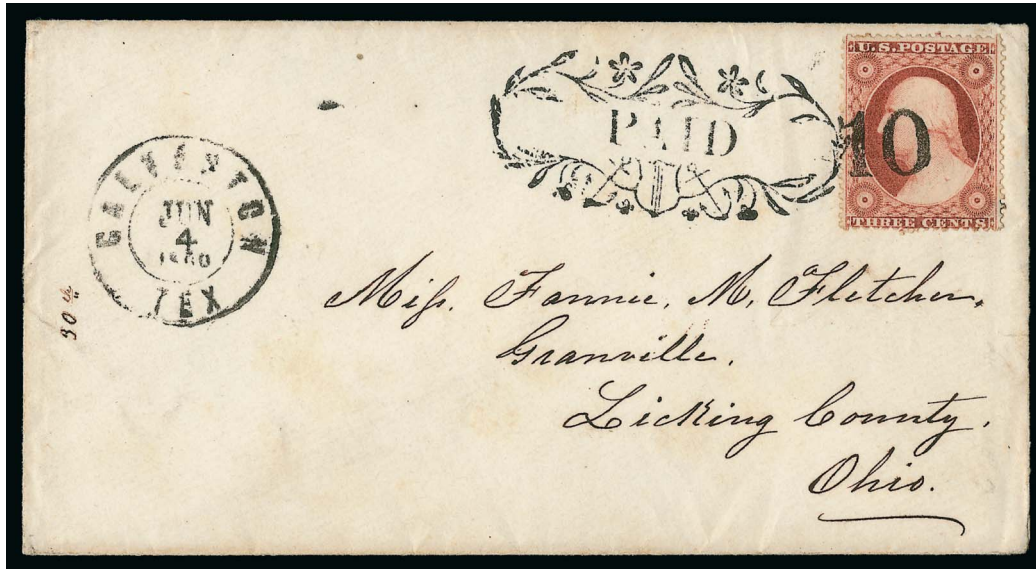 U.S. POSTAGE
PAID
10
THREE CENTS
GALVESTON
JUN
4
1860
TEX
30
Miss. Fannie. M. Fletcher.
Granville.
Licking County.
Ohio.